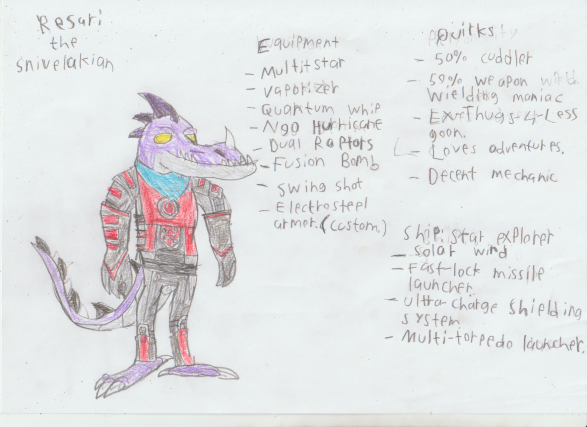 Resari
the
snivelakian
Equipment
- Multistar
- Vaporizer
- Quantum whip
- N90 Hurricane
- Dual Raptors
- Fusion Bomb
- Swing shot
- Electrosteel
armor. (custom)
Quirks
- 50% cuddler
- 50% weapon
wielding maniac
- Ex-Thugs-4-Less
goon.
- Loves adventures.
- Decent mechanic
Ship: Star explorer
- Solar wind
- Fast-lock missile
launcher
- Ultra-charge shielding
system
- Multi-torpedo launcher.